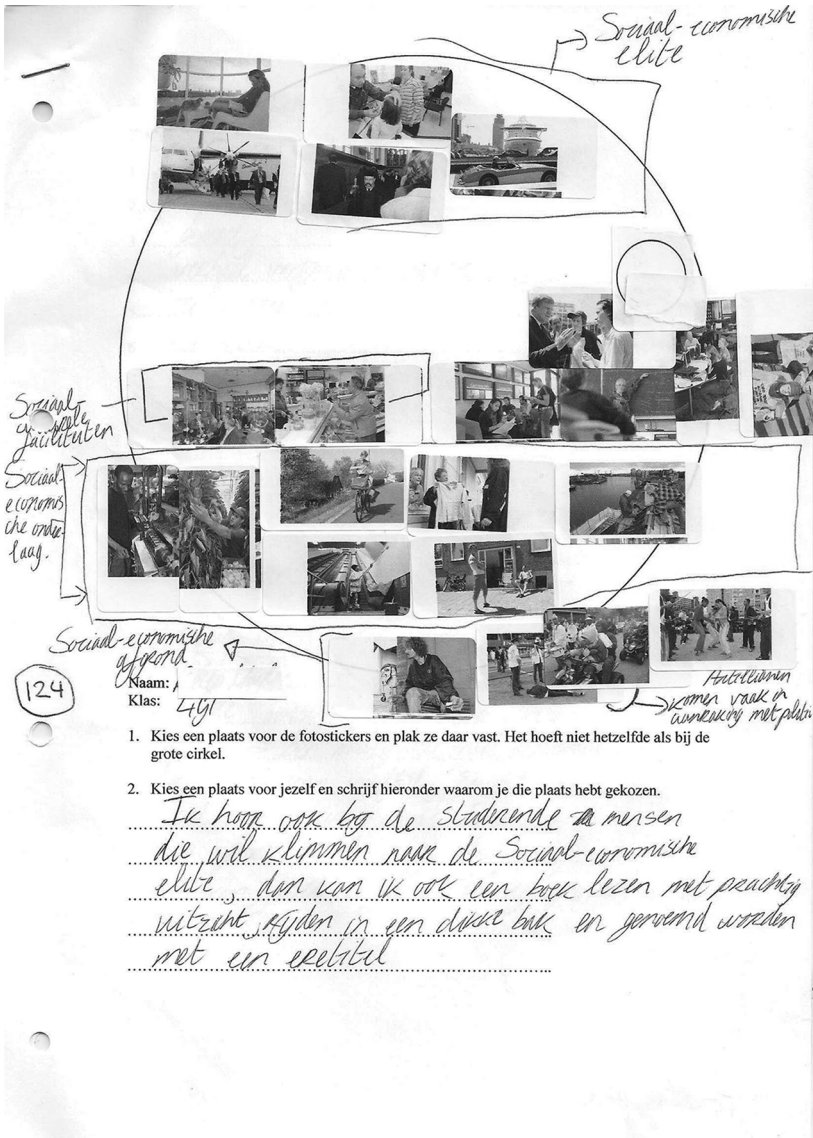 Sociaal-economische
elite
Sociaal-
faciliteiten
Sociaal-
economis
che onder-
laag.
Sociaal-economische
afgrond
Antillianen
komen vaak in
aanraking met politie
124
Naam:
Klas: 4g1
1. Kies een plaats voor de fotostickers en plak ze daar vast. Het hoeft niet hetzelfde als bij de
grote cirkel.
2. Kies een plaats voor jezelf en schrijf hieronder waarom je die plaats hebt gekozen.
Ik hoor ook bij de studerende mensen
die wil klimmen naar de Sociaal-economische
elite, dan kan ik ook een boek lezen met prachtig
uitzicht, rijden in een dikke bak en genoemd worden
met een eretitel